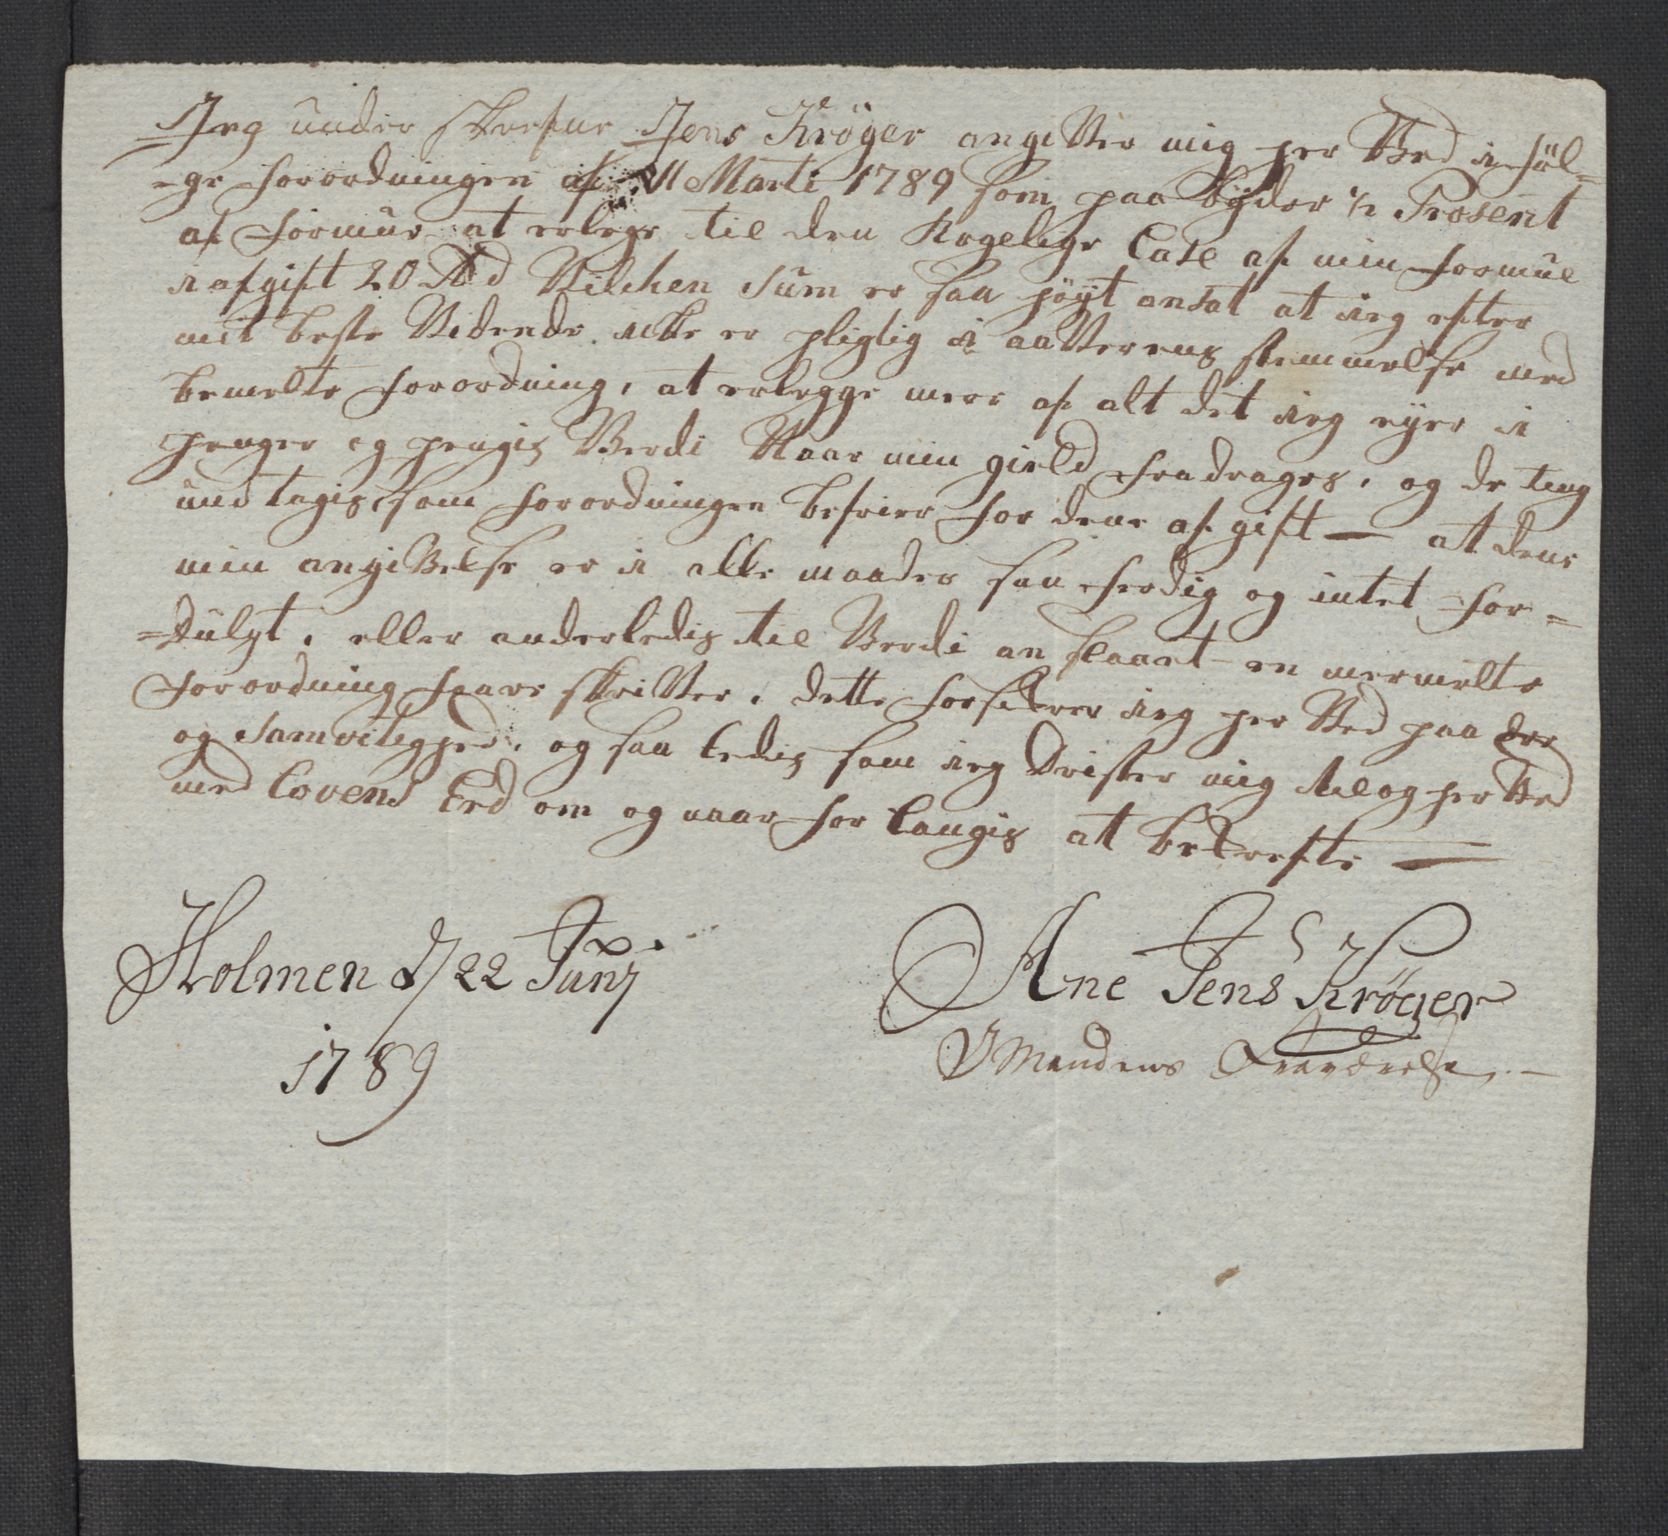 Jeg under skrefne Jens Krøger angifver mig her Ved i føl-
-ge forordningen af 11 Marti 1789 som paa byder 1/2 Prosent
af formue at erlege til den Kogelige Casse af min formue
i afgift 20 Rd Vilchen Sum er saa høyt ansat at ieg efter
mit beste Vidende icke er pligtig i aafverens stemmelse med
bemelte forordning, at erlegge mere af alt det ieg eyer i
penger og pengis Verdi Naar min gield fradrages, og de ting
und tagis som forordningen befrier for dene afgift — at dene
min angifvelse er i alle maader saa ferdig og intet for-
-Dulgt, eller anderledis til Verdi an slaaet en mermelte
forordning foare skrifver, dette forsikrer ieg her Ved paa Ere
og Samvitighed, og saa ledis som ieg Drister mig til og her Ved
med Lovens Eed om og naar for langis at bekrefte —
Holmen d/22 Junj
1789
Ane Jens Krøger
I Mandens Fraværelse. —